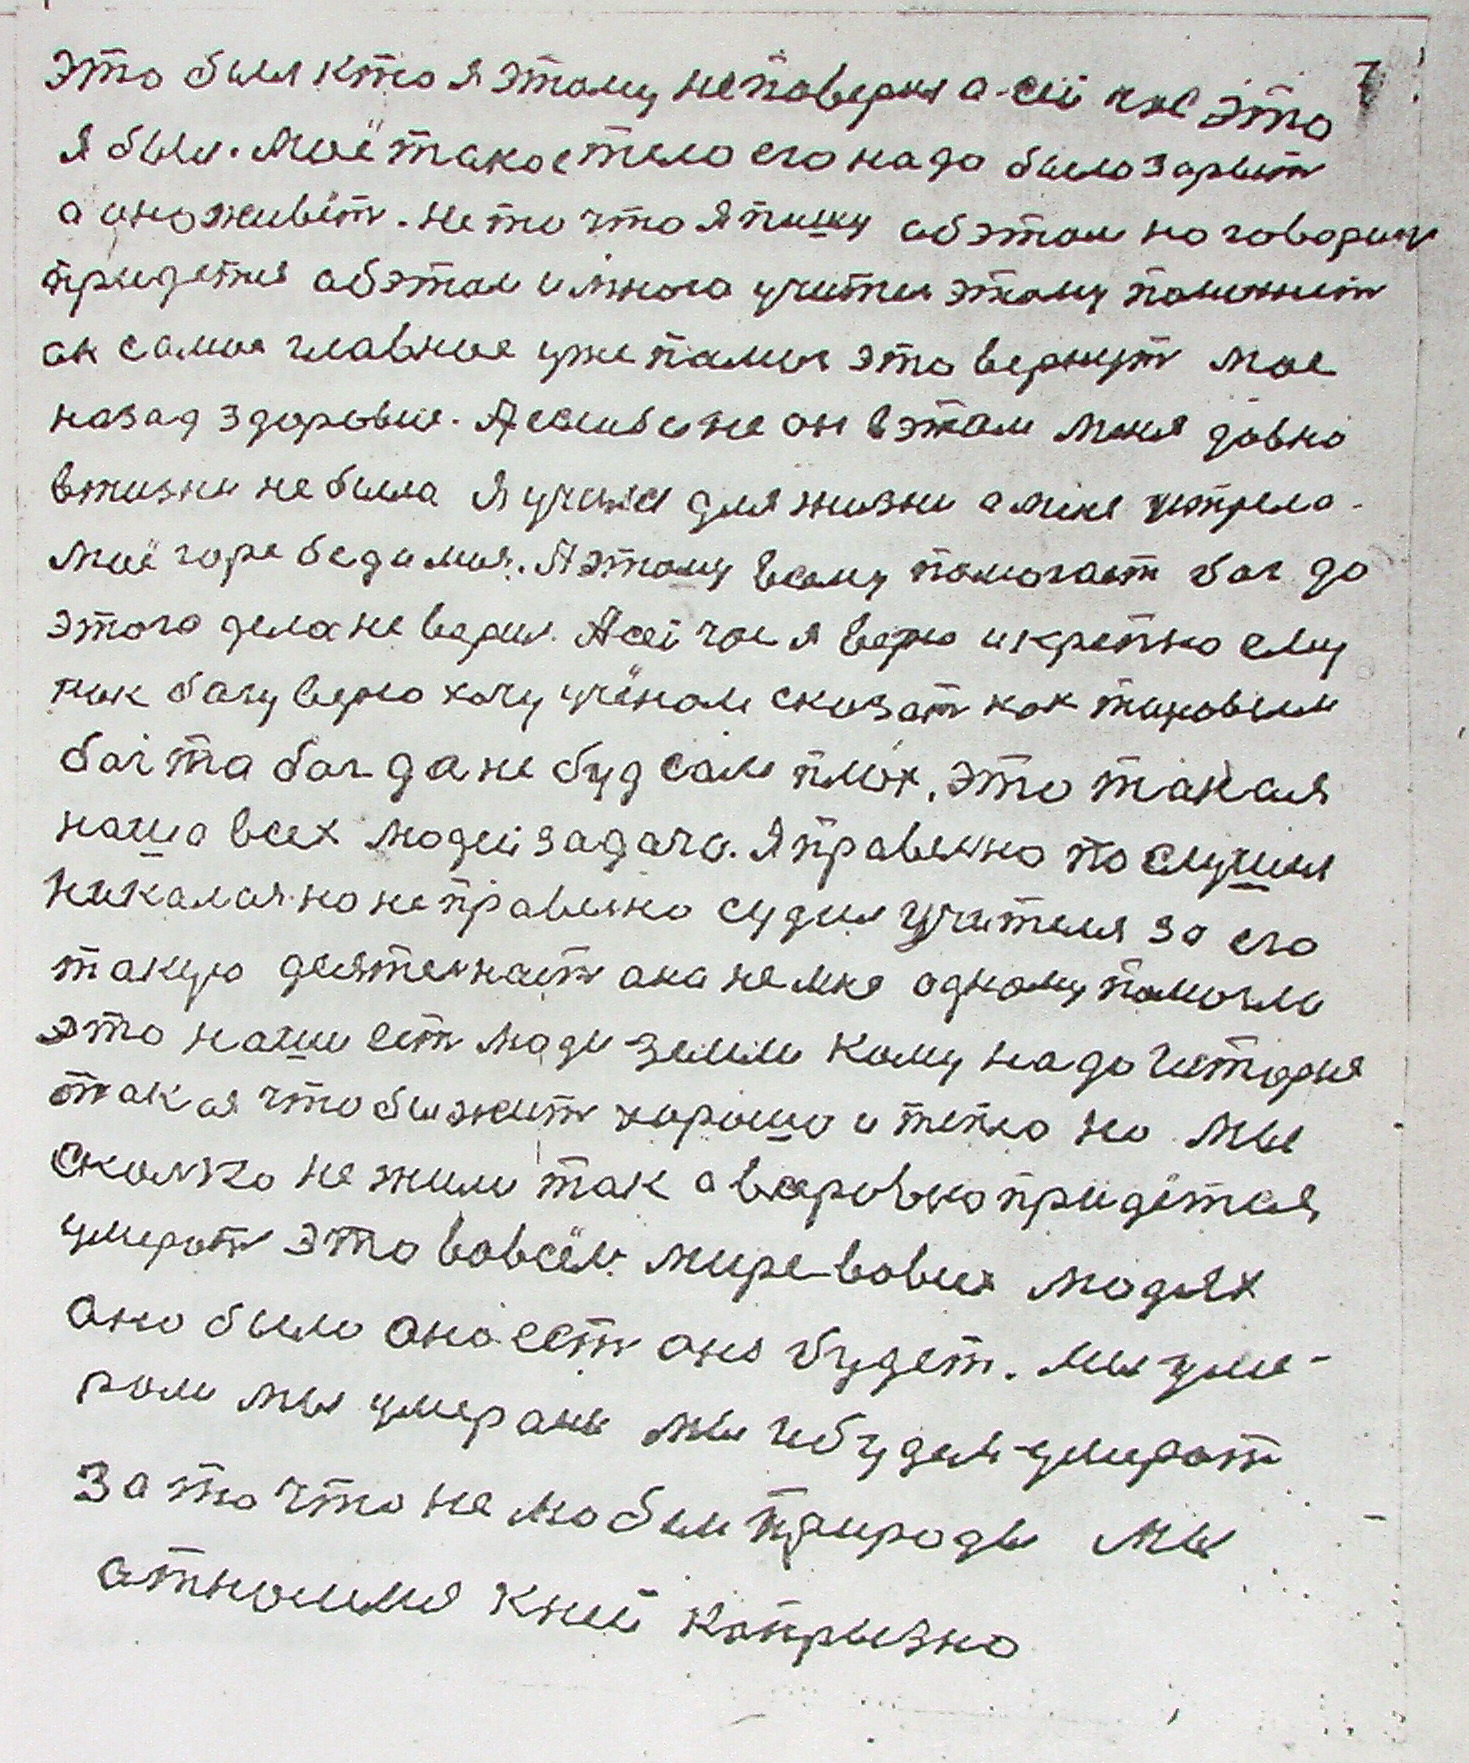 7
это был кто я этому не поверил а сей час это
я был. Моё такое тело его надо было зарыт
а оно живёт. не то что я пишу об этом но говорит
придется об этом и много учител этому поможит
он самое главное уже памог это вернут мое
назад здоровие. А если бы не он в этом меня давно
в жизни не была я учился для жизни а меня
моё горе беда моя. А этому всему помогает бог до
этого дела не верил. А сей час я верю и крепко ему
как богу верю хочу учёном сказат как таковым
бог та бог да не буд сам плох, это такая
наша всех людей задача. Я правелно послушал
никалая но неправелно судил Учителя за его
такую деятелнаст она не мне одному памогли
это наши ест люди земли кому надо история
такая что бы жит хорошо и тепло но мы
сколко не жили так а всеровно придётся
умерат это вовсём мире вовсех людях
оно было оно ест оно будет. мы уме-
рали мы умераем мы и будем умерат
за то что не любим природы мы
относимся к ней капрызно